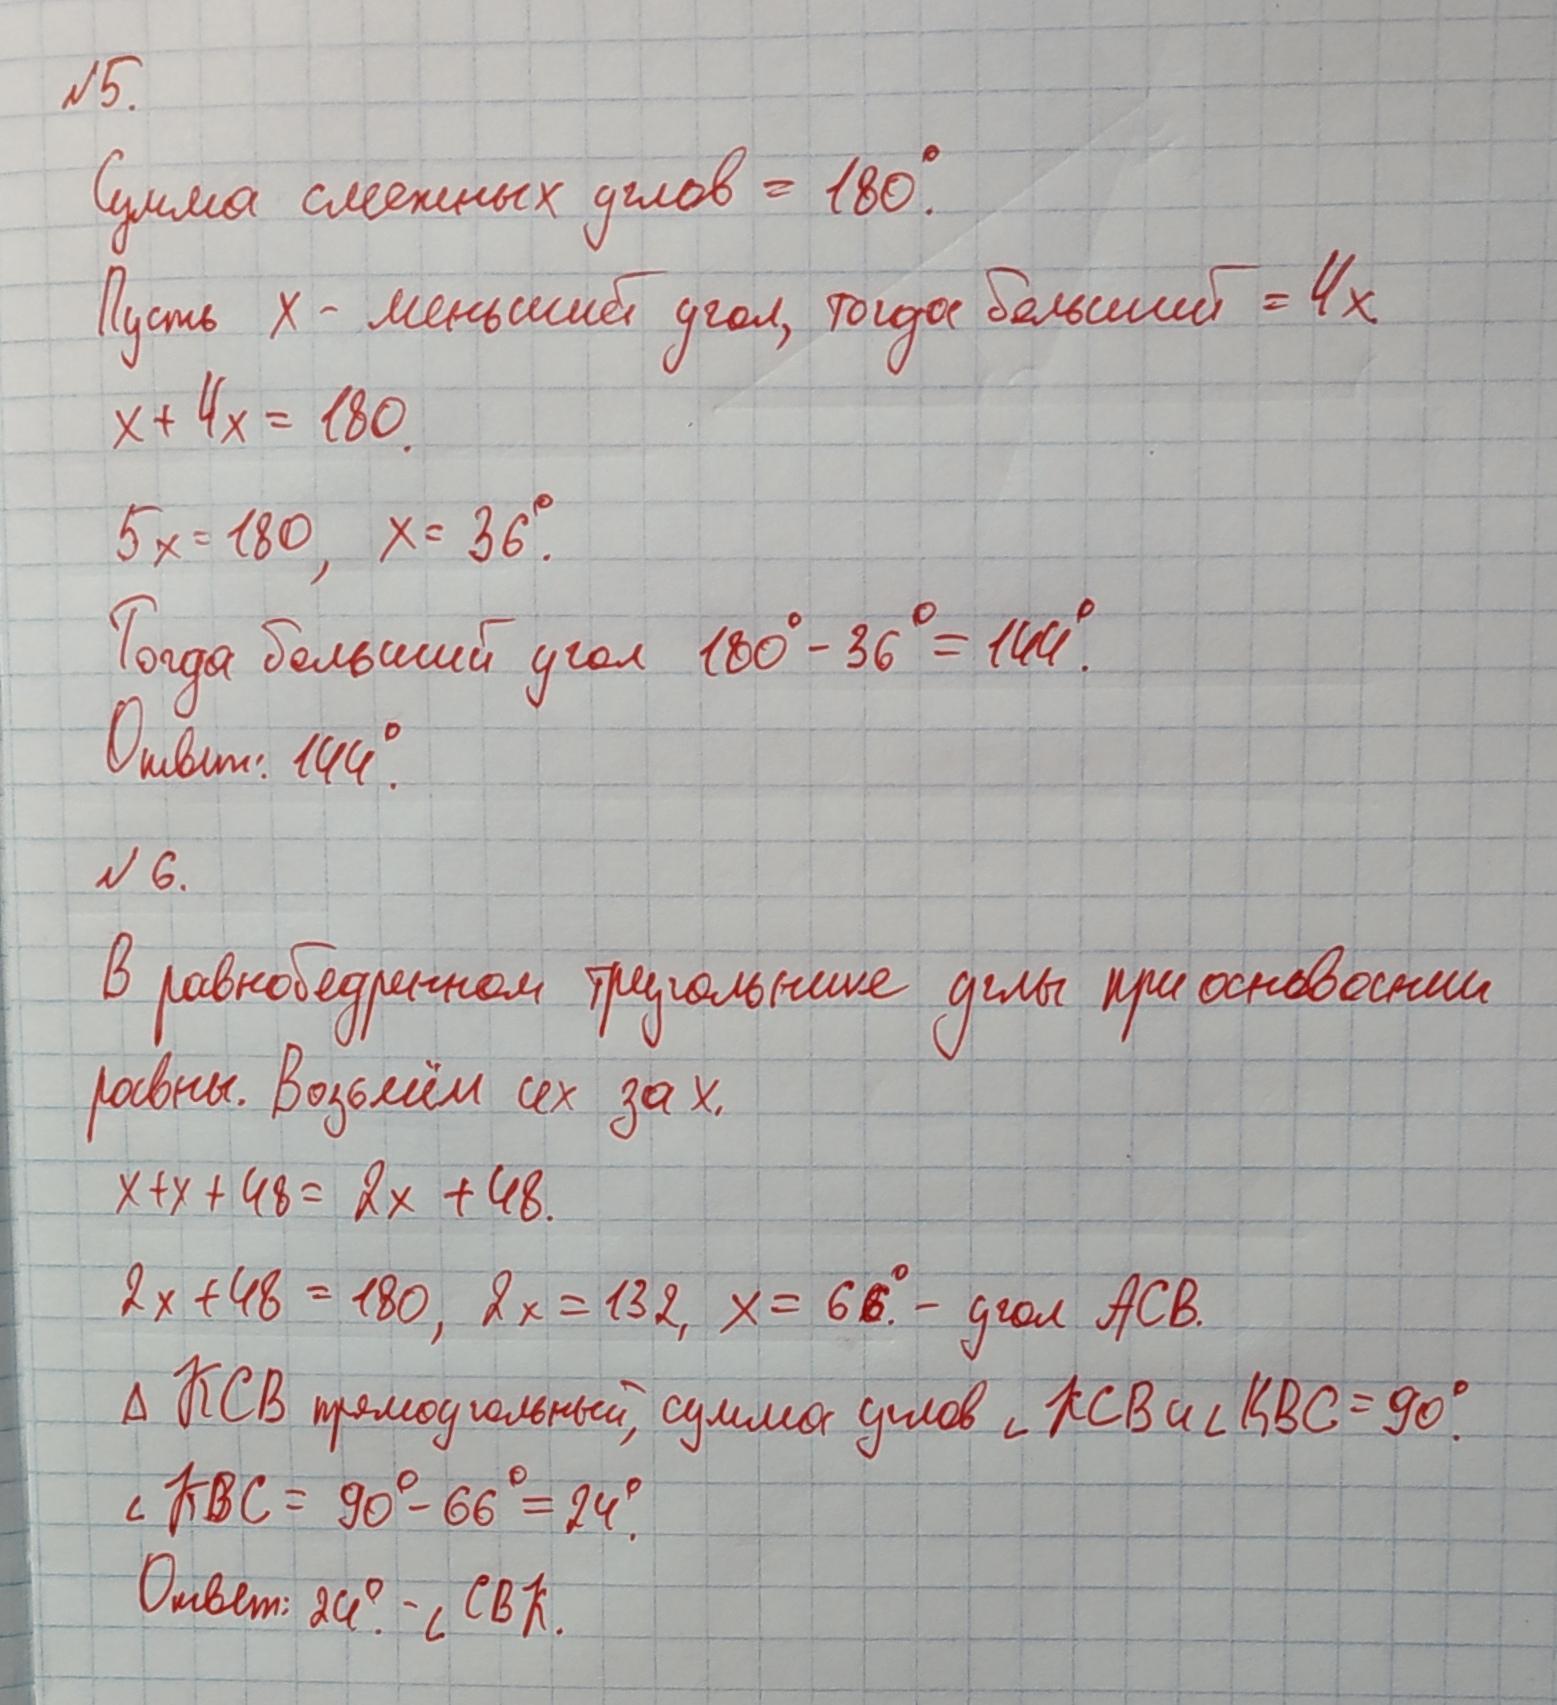 №5.
Сумма смежных углов = 180°.
Пусть x - меньший угол, тогда больший = 4x
x + 4x = 180.
5x = 180, x = 36°.
Тогда больший угол 180° - 36° = 144°.
Ответ: 144°.
№6.
В равнобедренном треугольнике углы при основании
равны. Возьмём их за x.
x+x+48 = 2x + 48.
2x + 48 = 180, 2x = 132, x = 66°. - угол ACB.
Δ KCB прямоугольный, сумма углов ∠KCB и ∠KBC = 90°.
∠KBC = 90° - 66° = 24°.
Ответ: 24°. - ∠CBK.